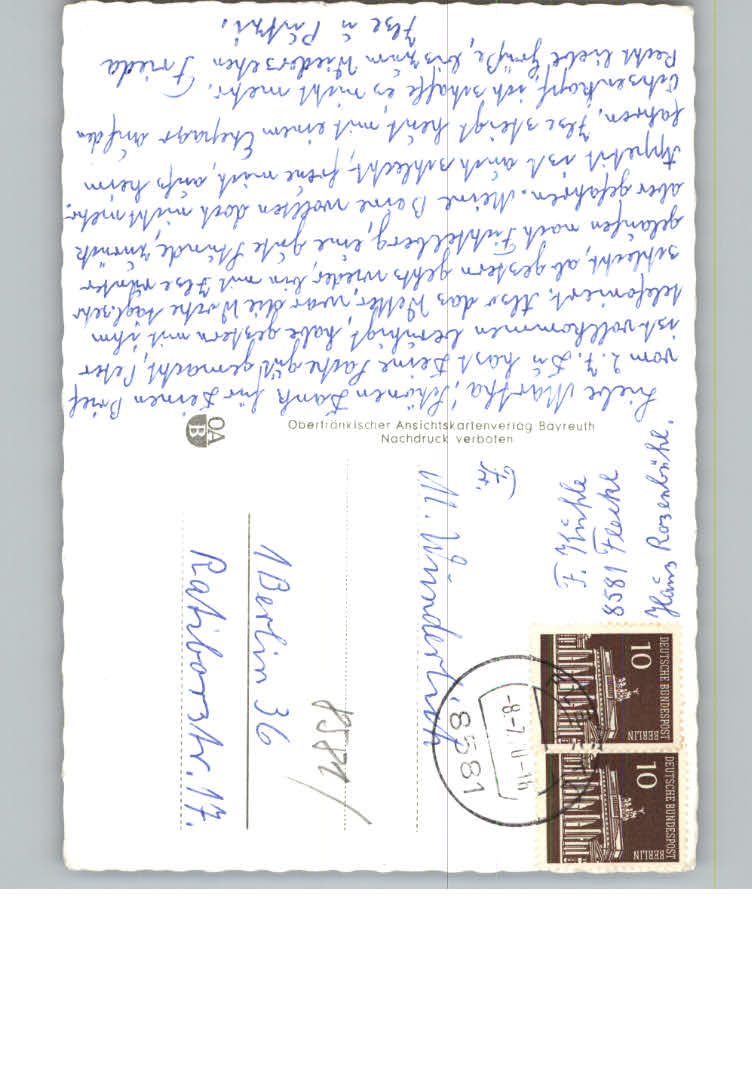 Liebe Martha! Schönen Dank für Deinen Brief
vom 2.7. Du hast Deine Sache gut gemacht, Peter
ist vollkommen beruhigt, habe gestern mit ihm
telefoniert. Also das Wetter, war die Woche tagl. sehr
schlecht, ab gestern gehts wieder, bin mit Ilse runter
gelaufen nach Fichtelberg, eine gute Stunde, zurück
aber gefahren. Meine Beine wollten doch nicht mehr.
Appetit ist auch schlecht, freue mich, aufs heim
fahren. Ilse steigt heut, mit einem Ehepaar auf den
Ochsenkopf, ich schaffe es nicht mehr.
Recht liebe Grüße, bis zum Wiedersehen Frieda
Ilse u
OA
B
Oberfränkischer Ansichtskartenverlag Bayreuth
Nachdruck verboten
F. Küfle
8581 Fleckl
Haus Rosenbühl.
Fr.
M. Wunderlich
1 Berlin 36
Ratiborstr. 17.
8581
8581
-8-7
-16
10
DEUTSCHE BUNDESPOST
BERLIN
10
DEUTSCHE BUNDESPOST
BERLIN